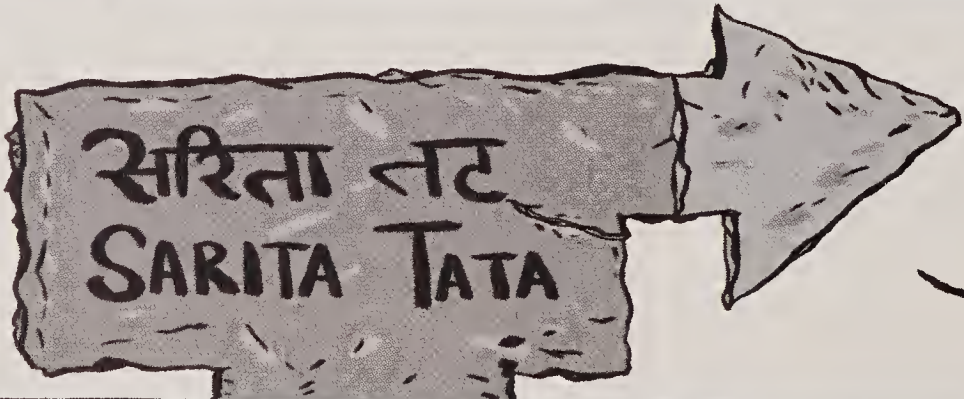 सरिता तट
SARITA TATA